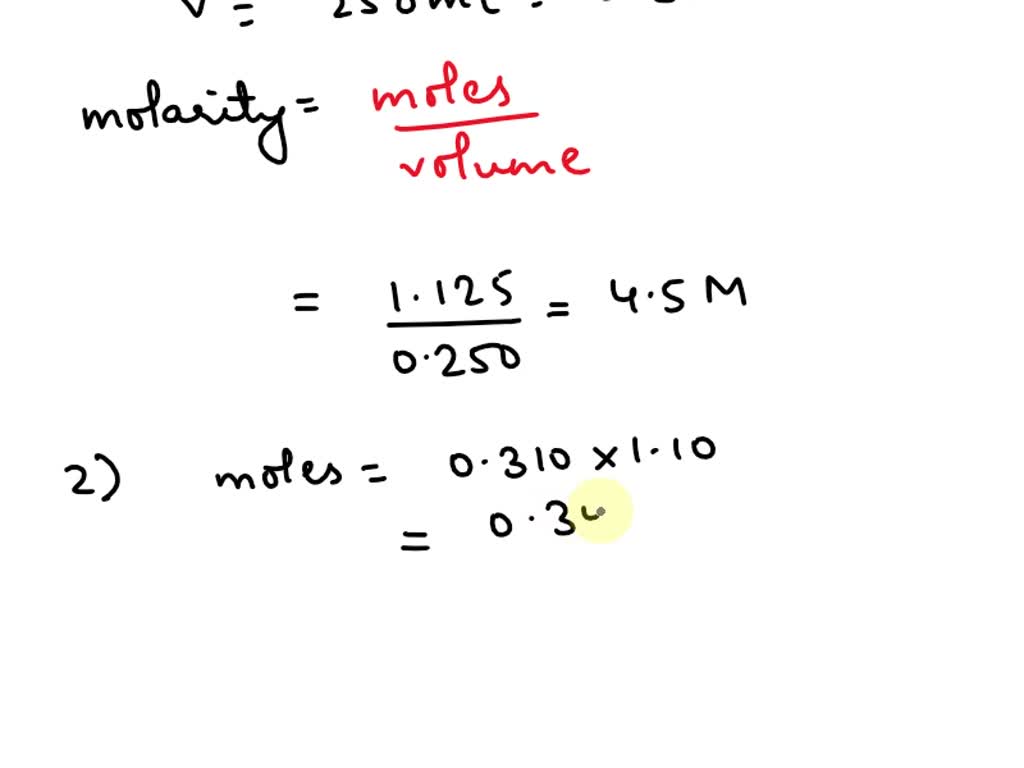 V = 250
molarity = moles
volume
= 1.125 = 4.5 M
0.250
2) moles = 0.310 × 1.10
= 0.3